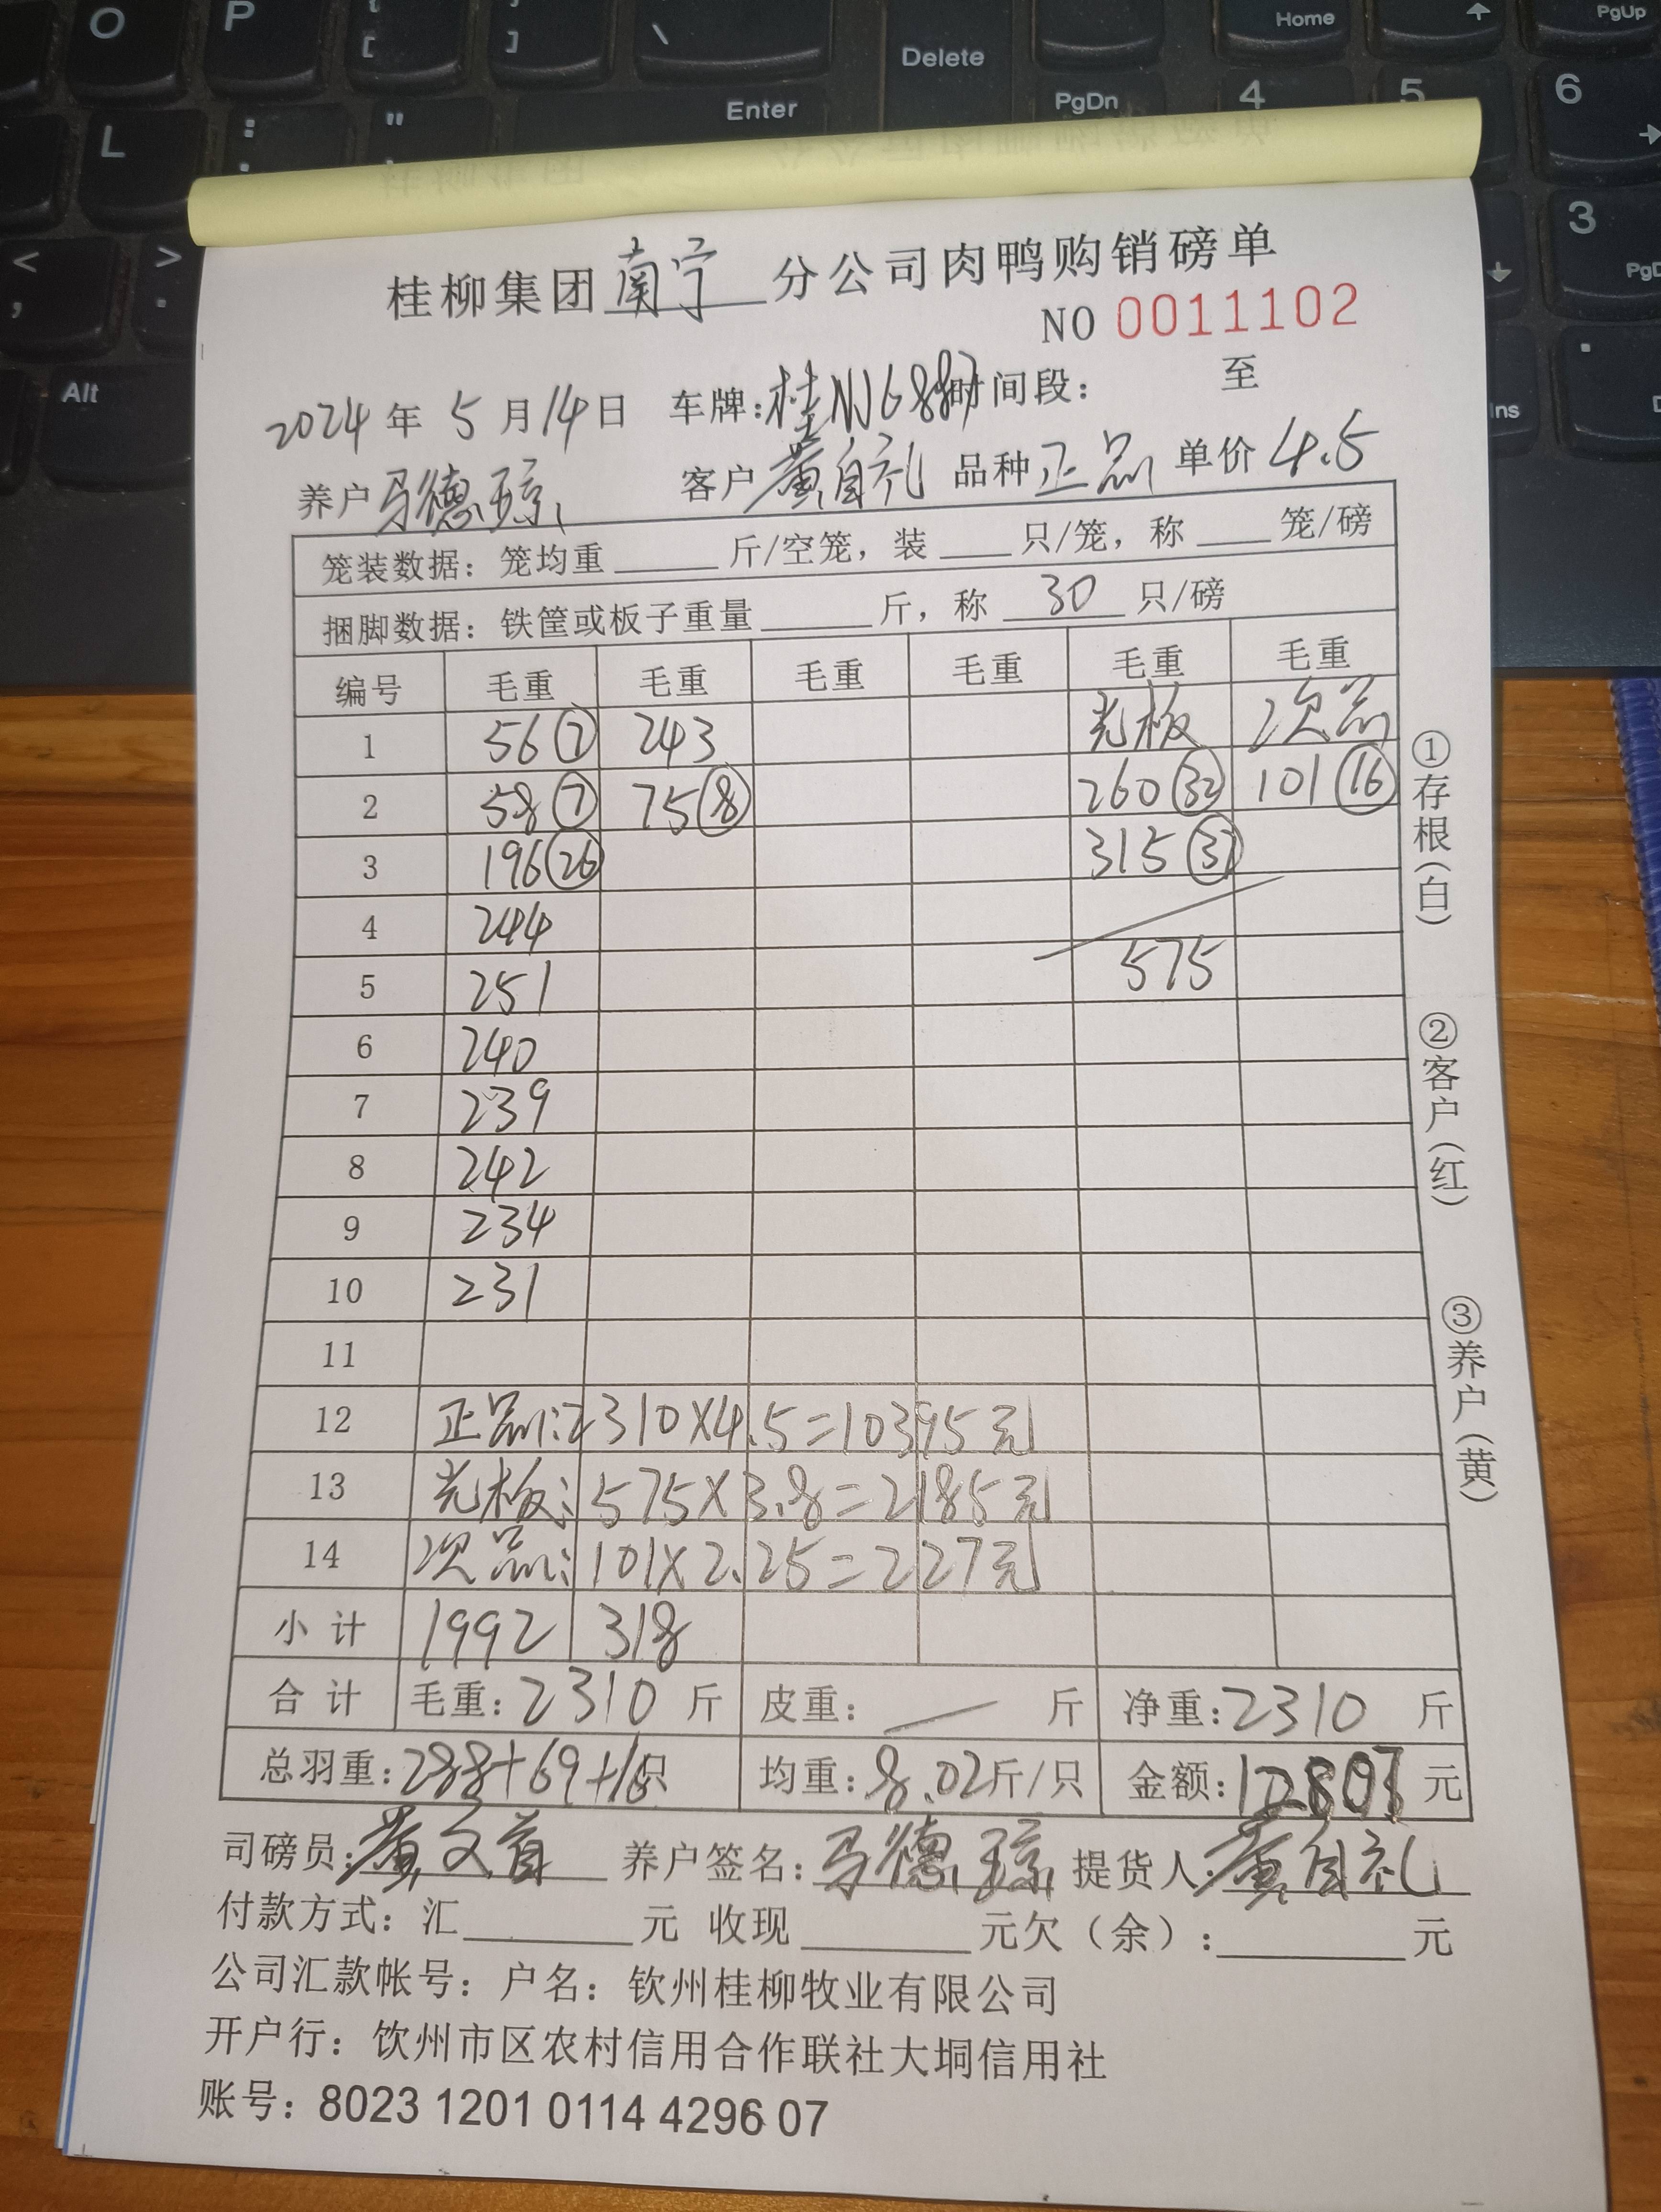 O P [ ] \ Delete Home PgUp
L : " Enter PgDn 4 5 6
< , > . 3
Alt Ins
桂柳集团南宁分公司肉鸭购销磅单
NO 0011102
2024年5月14日 车牌:桂N 时间段: 至
养户 马德琼 客户 黄自礼 品种 正品 单价 4.5
笼装数据: 笼均重 斤/空笼, 装 只/笼, 称 笼/磅
捆脚数据: 铁筐或板子重量 斤, 称 30 只/磅
编号 毛重 毛重 毛重 毛重 毛重 毛重
1 56⑦ 243 光板 次品
2 58⑦ 75⑧ 260㉜ 101⑯
3 196㉖ 315㊲
4 244
5 251 575
6 240
7 239
8 242
9 234
10 231
11
12 正品:2310X4.5=10395元
13 光板:575X3.8=2185元
14 次品:101X2.25=227元
小计 1992 318
合计 毛重:2310斤 皮重: — 斤 净重:2310斤
总羽重:288+69+16只 均重:8.02斤/只 金额:12807元
司磅员:黄文首 养户签名:马德琼 提货人:黄自礼
付款方式: 汇 元 收现 元欠(余): 元
公司汇款帐号: 户名: 钦州桂柳牧业有限公司
开户行: 饮州市区农村信用合作联社大垌信用社
账号: 8023 1201 0114 4296 07
①存根(白)
②客户(红)
③养户(黄)